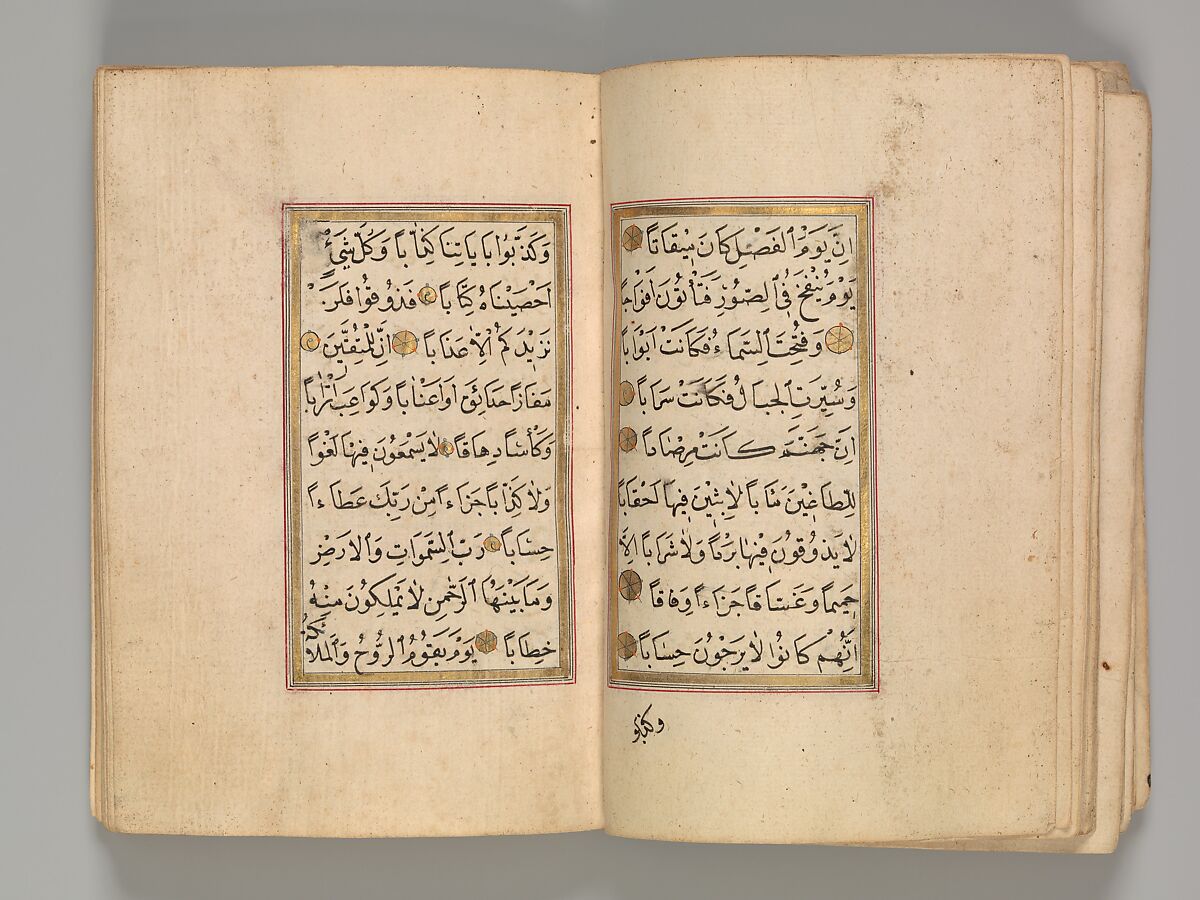 اِنَّ يَوْمَ الْفَصْلِ كَانَ مِيقَاتاً
يَوْمَ يُنْفَخُ فِي الصُّورِ فَتَأْتُونَ اَفْوَاجاً
وَفُتِحَتِ السَّمَاءُ فَكَانَتْ اَبْوَاباً
وَسُيِّرَتِ الْجِبَالُ فَكَانَتْ سَرَاباً
اِنَّ جَهَنَّمَ كَانَتْ مِرْصَاداً
لِلطَّاغِينَ مَئَاباً لَابِثِينَ فِيهَا اَحْقَاباً
لَا يَذُوقُونَ فِيهَا بَرْداً وَلَا شَرَاباً اِلَّا
حَمِيماً وَغَسَّاقاً جَزَاءً وِفَاقاً
اِنَّهُمْ كَانُوا لَا يَرْجُونَ حِسَاباً
وكذبوا
وَكَذَّبُوا بِاٰيَاتِنَا كِذَّاباً وَكُلَّ شَيْءٍ
اَحْصَيْنَاهُ كِتَاباً فَذُوقُوا فَلَنْ
نَزِيدَكُمْ اِلَّا عَذَاباً اِنَّ لِلْمُتَّقِينَ
مَفَازاً حَدَائِقَ وَاَعْنَاباً وَكَوَاعِبَ اَتْرَاباً
وَكَأْساً دِهَاقاً لَا يَسْمَعُونَ فِيهَا لَغْواً
وَلَا كِذَّاباً جَزَاءً مِنْ رَبِّكَ عَطَاءً
حِسَاباً رَبِّ السَّمٰوَاتِ وَالْاَرْضِ
وَمَا بَيْنَهُمَا الرَّحْمٰنِ لَا يَمْلِكُونَ مِنْهُ
خِطَاباً يَوْمَ يَقُومُ الرُّوحُ وَالْمَلٰئِكَةُ